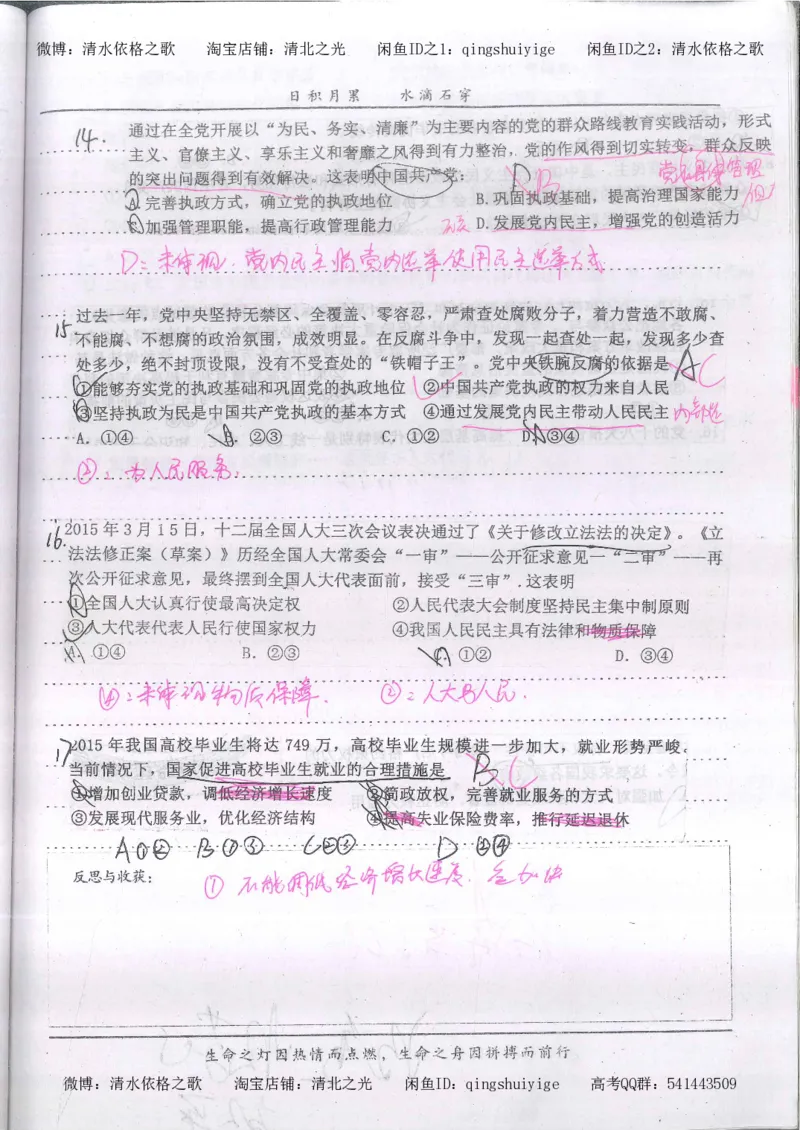 微博：清水依格之歌　淘宝店铺：清北之光　闲鱼ID之1：qingshuiyige　闲鱼ID之2：清水依格之歌
日积月累　水滴石穿
14. 通过在全党开展以“为民、务实、清廉”为主要内容的党的群众路线教育实践活动，形式
主义、官僚主义、享乐主义和奢靡之风得到有力整治，党的作风得到切实转变，群众反映
的突出问题得到有效解决。这表明中国共产党： D B
A 完善执政方式，确立党的执政地位　B. 巩固执政基础，提高治理国家能力
C 加强管理职能，提高行政管理能力　D. 发展党内民主，增强党的创造活力
D：未体现．党内民主指党内选举使用民主选举方式
15. 过去一年，党中央坚持无禁区、全覆盖、零容忍，严肃查处腐败分子，着力营造不敢腐、
不能腐、不想腐的政治氛围，成效明显。在反腐斗争中，发现一起查处一起，发现多少查
处多少，绝不封顶设限，没有不受查处的“铁帽子王”。党中央铁腕反腐的依据是 A C
①能够夯实党的执政基础和巩固党的执政地位　②中国共产党执政的权力来自人民
③坚持执政为民是中国共产党执政的基本方式　④通过发展党内民主带动人民民主
A. ①④　B. ②③　C. ①②　D. ③④
③：为人民服务．
16. 2015年3月15日，十二届全国人大三次会议表决通过了《关于修改立法法的决定》。《立
法法修正案（草案）》历经全国人大常委会“一审”——公开征求意见—“二审”——再
次公开征求意见，最终摆到全国人大代表面前，接受“三审”.这表明
①全国人大认真行使最高决定权　②人民代表大会制度坚持民主集中制原则
③人大代表代表人民行使国家权力　④我国人民民主具有法律和物质保障
A. ①④　B. ②③　C. ①②　D. ③④
④：未体现物质保障．　②：人大与人民．
17 2015年我国高校毕业生将达749万，高校毕业生规模进一步加大，就业形势严峻．
当前情况下，国家促进高校毕业生就业的合理措施是 B C
①增加创业贷款，调低经济增长速度　②简政放权，完善就业服务的方式
③发展现代服务业，优化经济结构　④提高失业保险费率，推行延迟退休
A①②　B①③　C②③　D③④
反思与收获：　① 不能调低经济增长速度．
生命之灯因热情而点燃，生命之舟因拼搏而前行
微博：清水依格之歌　淘宝店铺：清北之光　闲鱼ID：qingshuiyige　高考QQ群：541443509